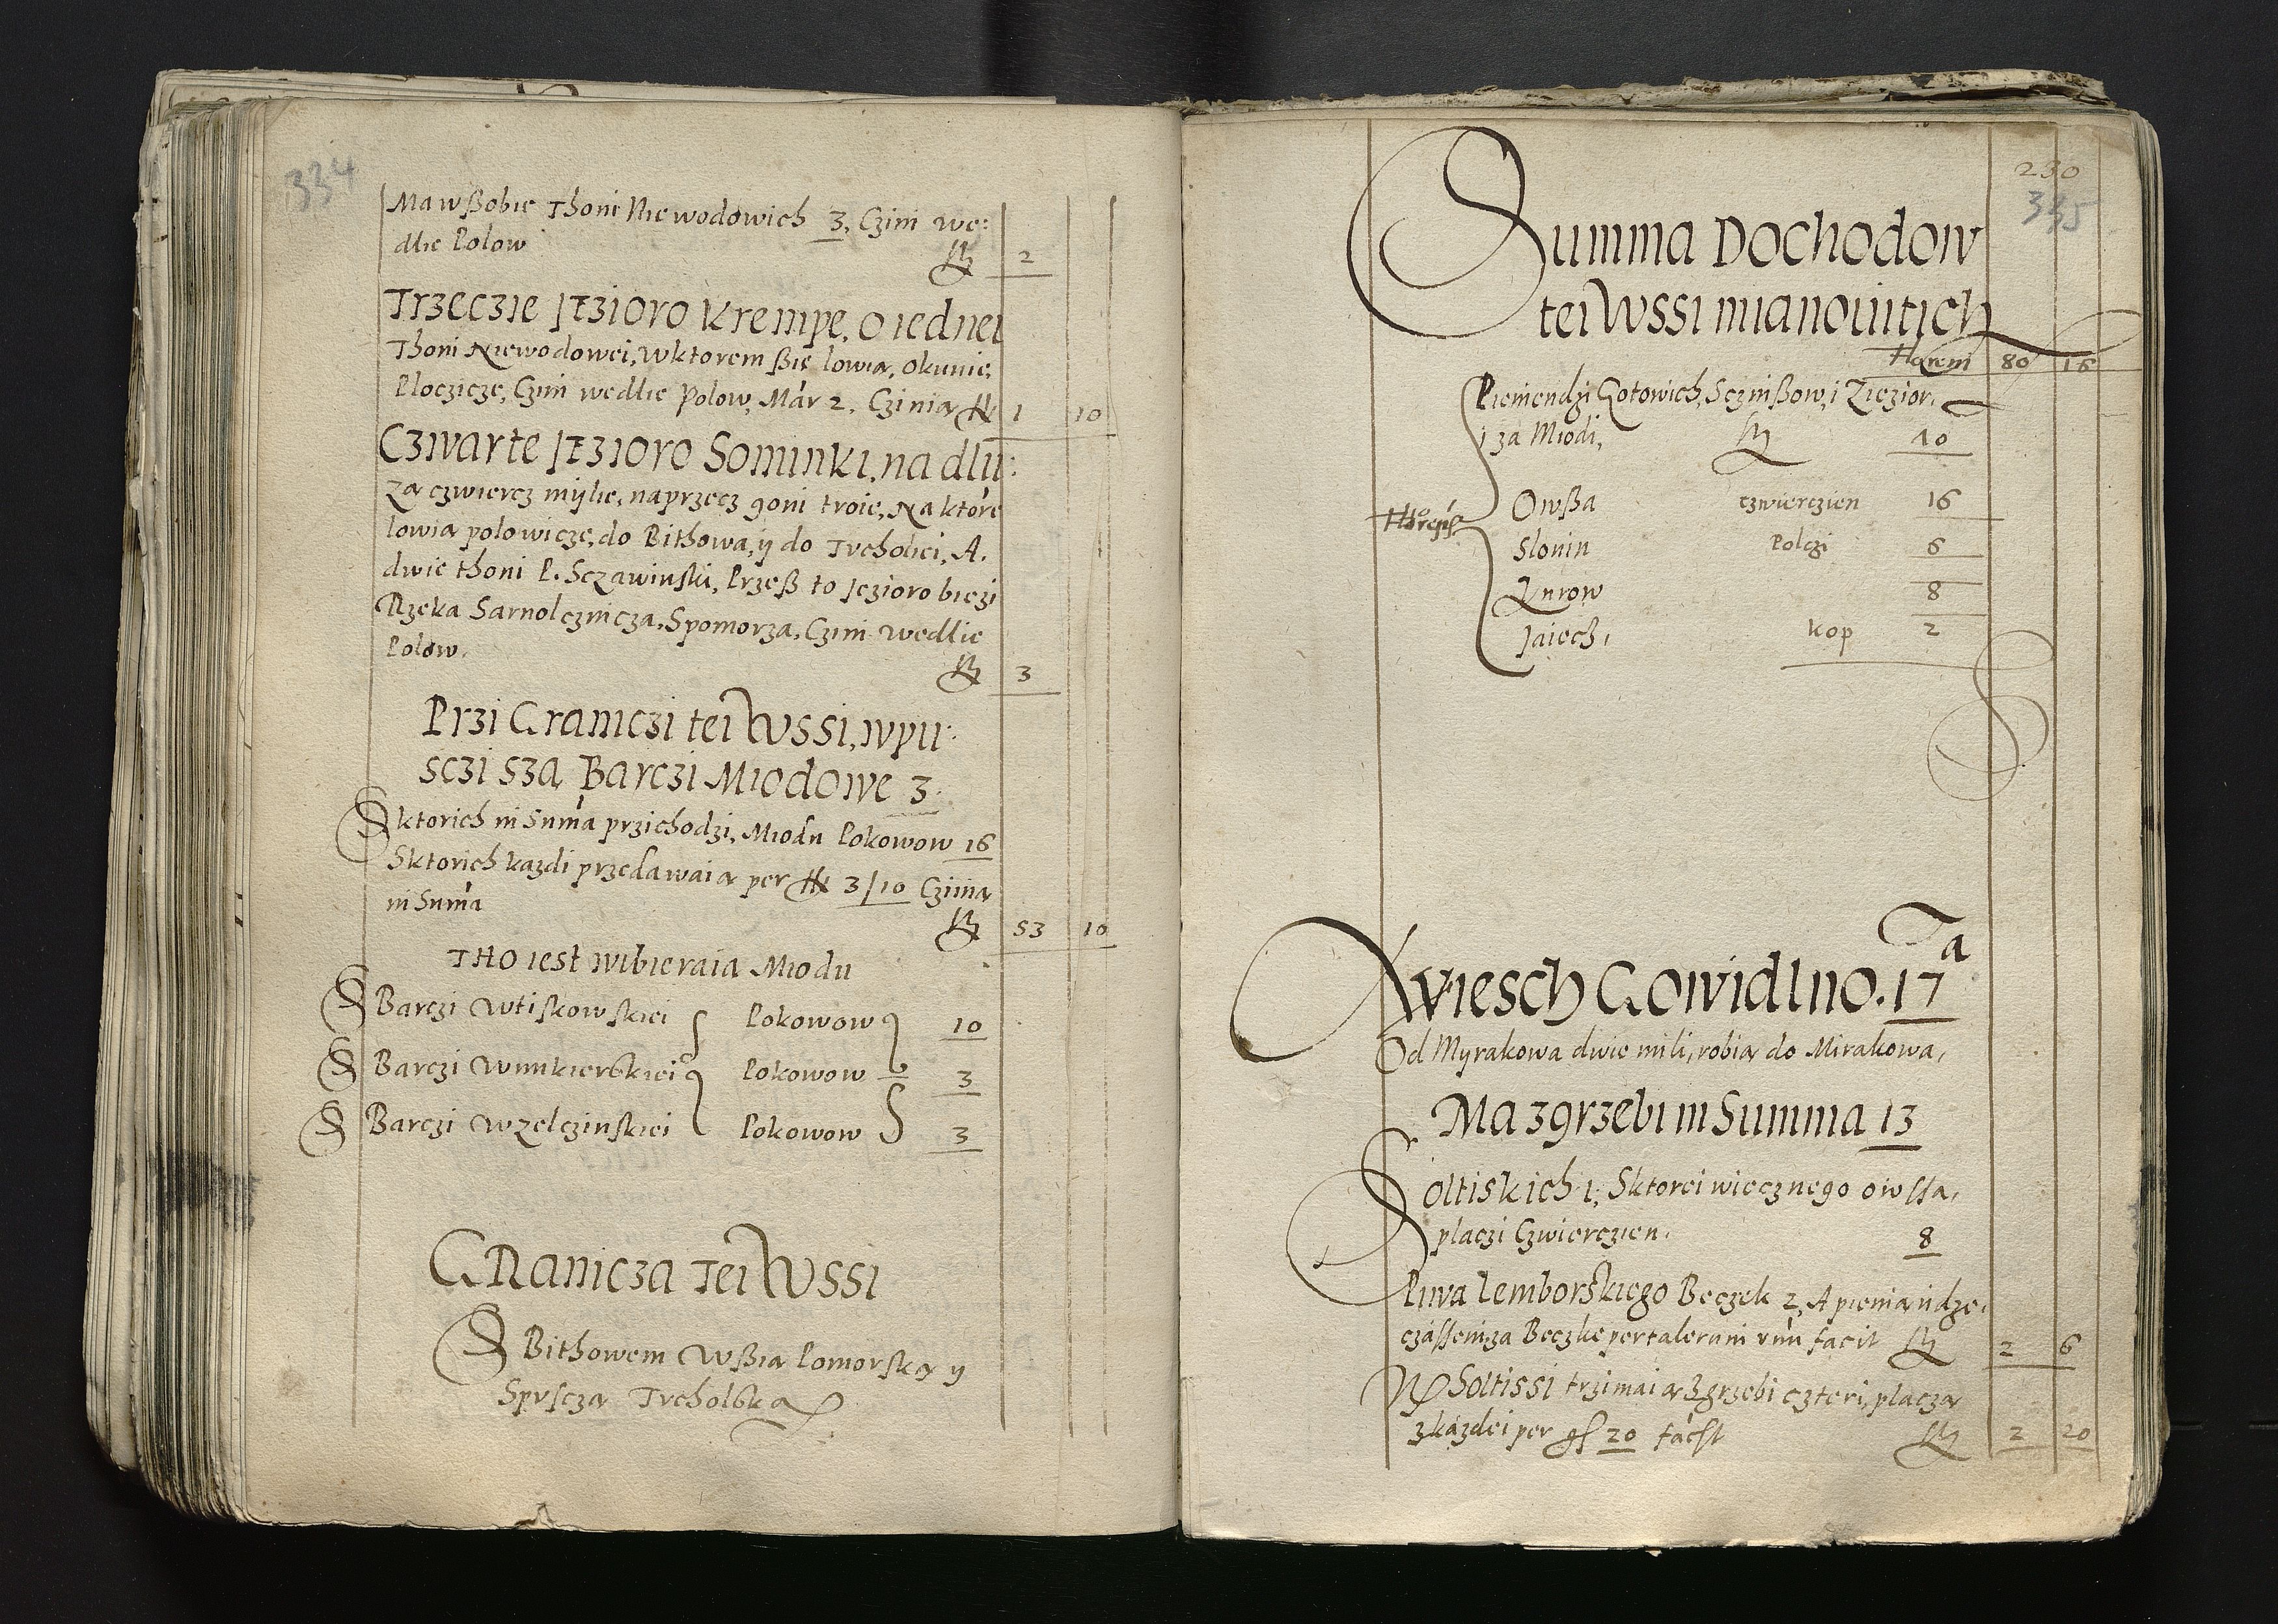 334
Ma w ßobie Thoni Niewodowich 3, Czini we:
dlie Polow fl 2
Trzeczie Jezioro Krempe, o iednei
Thoni Niewodowei, w ktorem ßię lowią, okunie,
Ploczicze, Czini wedlie Polow, Mar 2. Czinią fl 1 10
Czwarte Jezioro Sominki, na dlu:
zą czwiercz mylie, naprzecz goni troie, Na ktore
lowią polowicze, do Bithowa, y do Tvcholiei, A.
dwie thoni P. Sczawinski, Przeß to Jezioro bieżi
Rzeka Sarnolcznicza, S pomorza, Czini wedlie
Polow. fl 3
Przi Graniczi tei Wssi, w pu:
sczi szą Barczi Miodowe 3.
S ktorich in Suma przichodzi, Miodu Pokowow 16
S ktorich kazdi przedawaią per fl 3/10 Czinią
in Suma fl 53 10
THO iest wibieraią Miodu
S Barczi Wtiskowskiei Pokowow 10
S Barczi Wunkierskiei Pokowow 3
S Barczi Wzelczinskiei Pokowow 3
GRanicza Tei Wssi
S Bithowem Wßią Pomorską y
S pusczą Tvcholską
230
335
Summa Dochodow
tei Wssi mianowitich
Floreni 80 18
Pieniendzi Gotowich, S czinßow, i Z iezior,
i za Miodi, fl 10
Owßa czwierczien 16
Slonin Polczi 6
Knrow 8
Jaiech, kop 2
Wiesch Gowidlno. 17 a
Od Myrakowa dwie mili, robią do Mirakowa,
Ma zgrzebi in Summa 13
Soltiskich 1, S ktorei wiecznego owssa,
placzi Czwierczien. 8
Piwa lemborskiego Beczek 2, A pieniąndze,
czassem za Beczke per talerum unu facit fl 2 6
Soltissi trzimaią Zgrzebi czteri, placzą
z kazdei per gs 20 facst fl 2 20